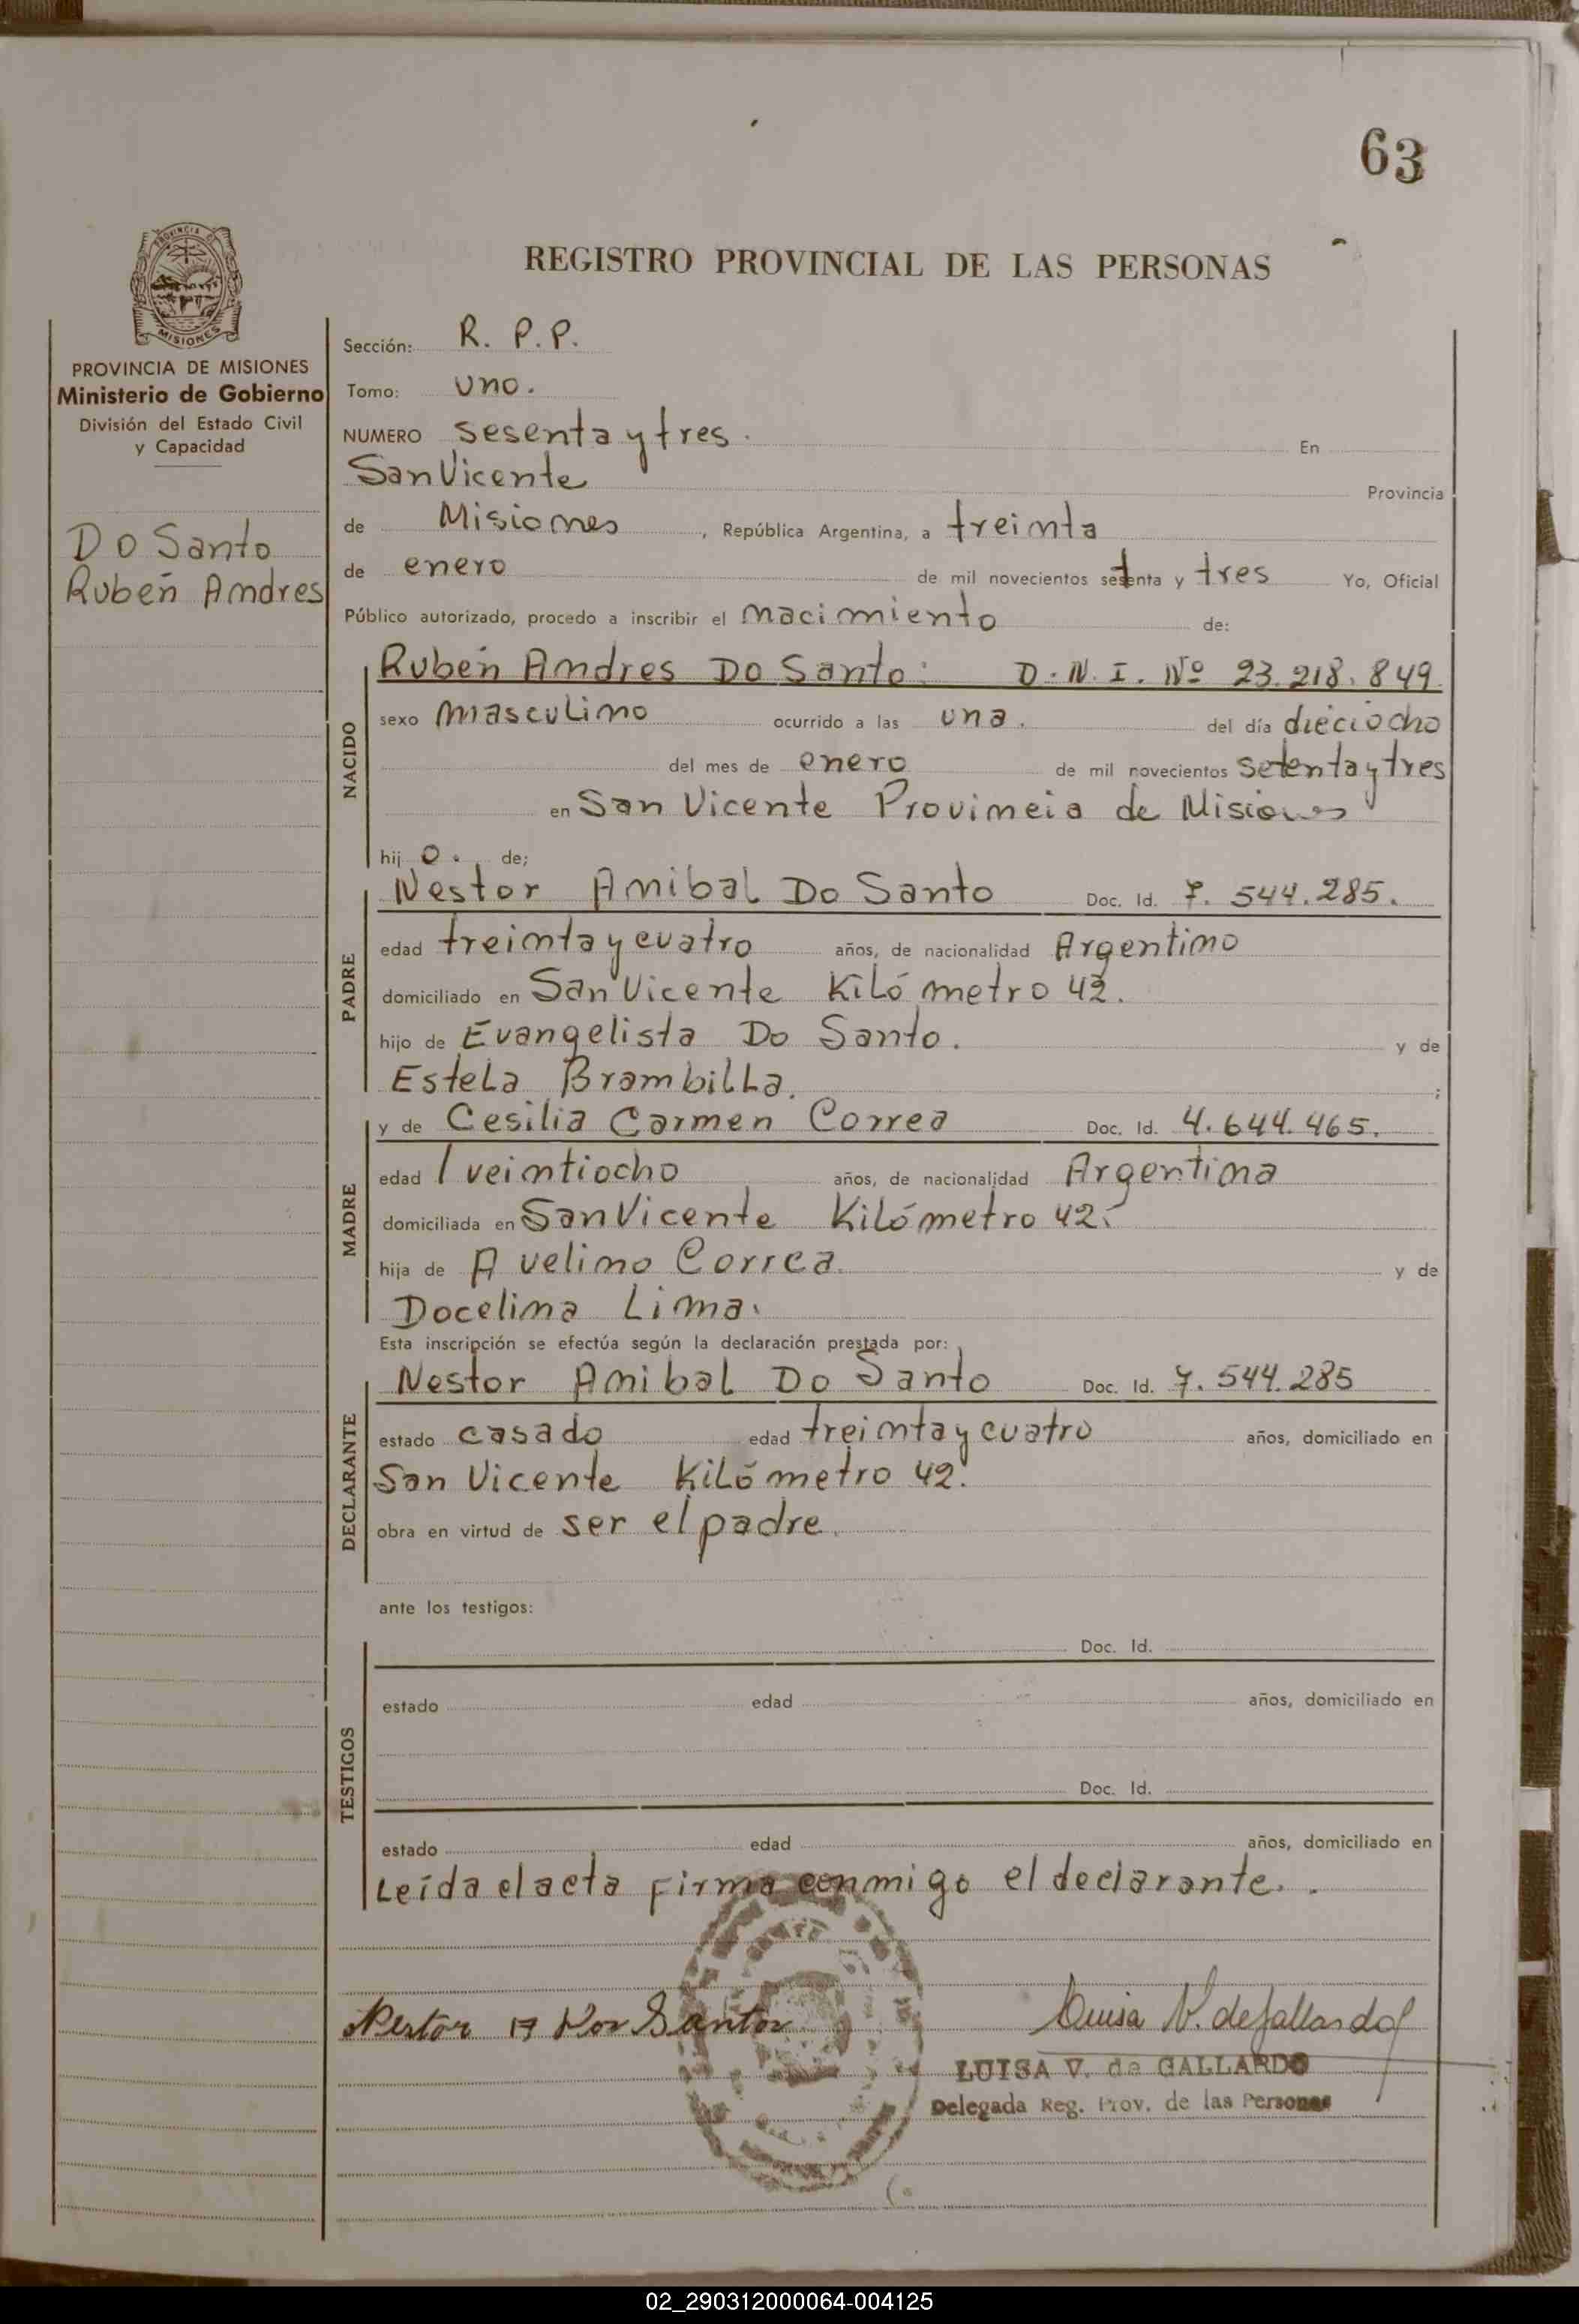 63
REGISTRO PROVINCIAL DE LAS PERSONAS
PROVINCIA DE MISIONES
Ministerio de Gobierno
División del Estado Civil
y Capacidad
Do Santo
Rubén Andres
Sección: R. P. P.
Tomo: uno.
NUMERO sesenta y tres. En
San Vicente Provincia
de Misiones, República Argentina, a treinta
de enero de mil novecientos setenta y tres Yo, Oficial
Público autorizado, procedo a inscribir el nacimiento de:
NACIDO
Rubén Andres Do Santo: D.N.I. Nº 23.218.849.
sexo masculino ocurrido a las una. del día dieciocho
del mes de enero de mil novecientos setenta y tres
en San Vicente Provincia de Misiones
hij o. de;
PADRE
Nestor Anibal Do Santo Doc. Id. 7.544.285.
edad treinta y cuatro años, de nacionalidad Argentino
domiciliado en San Vicente Kilómetro 42.
hijo de Evangelista Do Santo. y de
Estela Brambilla. ;
MADRE
y de Cesilia Carmen Correa Doc. Id. 4.644.465.
edad veintiocho años, de nacionalidad Argentina
domiciliada en San Vicente Kilómetro 42.
hija de Avelino Correa. y de
Docelina Lima.
Esta inscripción se efectúa según la declaración prestada por:
DECLARANTE
Nestor Anibal Do Santo Doc. Id. 7.544.285
estado casado edad treinta y cuatro años, domiciliado en
San Vicente Kilómetro 42.
obra en virtud de ser el padre.
ante los testigos:
TESTIGOS
Doc. Id.
estado edad años, domiciliado en
Doc. Id.
estado edad años, domiciliado en
Leída el acta firma conmigo el declarante.
Nestor A Dos Santos
Luisa V. de Gallardo
LUISA V. de GALLARDO
Delegada Reg. Prov. de las Personas
02_290312000064-004125